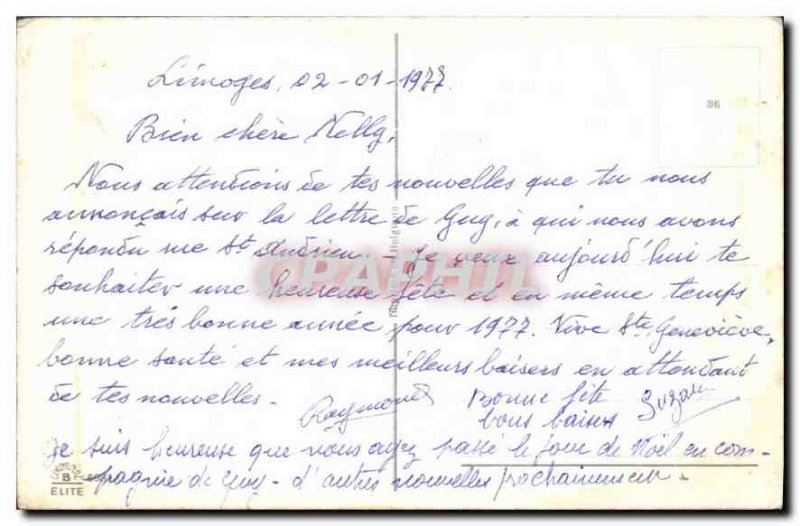 Limoges, 02-01-1977.
36
Bien chère Nelly,
Nous attendions de tes nouvelles que tu nous
annonçais sur la lettre de Guy, à qui nous avons
répondu rue St Andrien. - Je veux aujourd'hui te
souhaiter une heureuse fête et en même temps
une très bonne année pour 1977. Vive Ste Geneviève,
bonne santé et mes meilleurs baisers en attendant
de tes nouvelles -
Raymond
Bonne fête
bons baisers Suzan
Je suis heureuse que vous ayez passé le jour de Noël en com-
pagnie de Guy - d'autres nouvelles prochainement -
CPAPHIL
B
ELITE